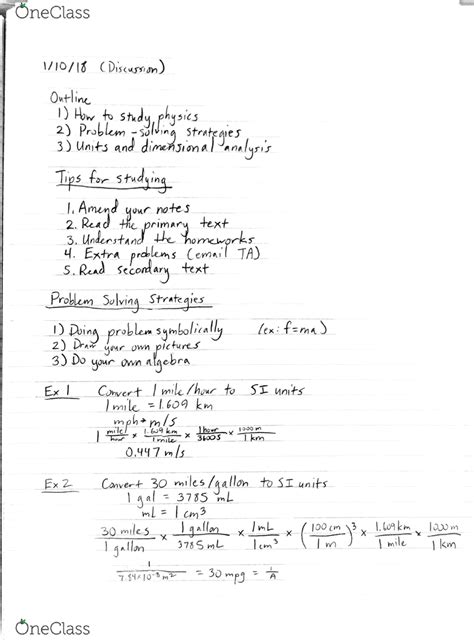 OneClass
1/10/18 (Discussion)
Outline
1) How to study physics
2) Problem-solving strategies
3) Units and dimensional analysis
Tips for studying
1. Amend your notes
2. Read the primary text
3. Understand the homeworks
4. Extra problems (email TA)
5. Read secondary text
Problem Solving Strategies
1) Doing problem symbolically (ex: f=ma)
2) Draw your own pictures
3) Do your own algebra
Ex 1 Convert 1 mile/hour to SI units
1 mile = 1.609 km
mph → m/s
1 mile/hour × 1.609 km/1 mile × 1 hour/3600 s × 1000 m/1 km
0.447 m/s
Ex 2 Convert 30 miles/gallon to SI units
1 gal = 3785 mL
mL = 1 cm³
30 miles/1 gallon × 1 gallon/3785 mL × 1 mL/1 cm³ × (100 cm/1 m)³ × 1.609 km/1 mile × 1000 m/1 km
= 30 mpg = 1/A
OneClass